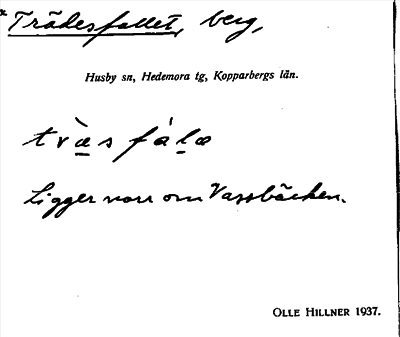 Trädesfallet, berg,
Husby sn, Hedemora tg, Kopparbergs län.
tvæ̀s fálæ
Ligger norr om Vassbäcken.
OLLE HILLNER 1937.